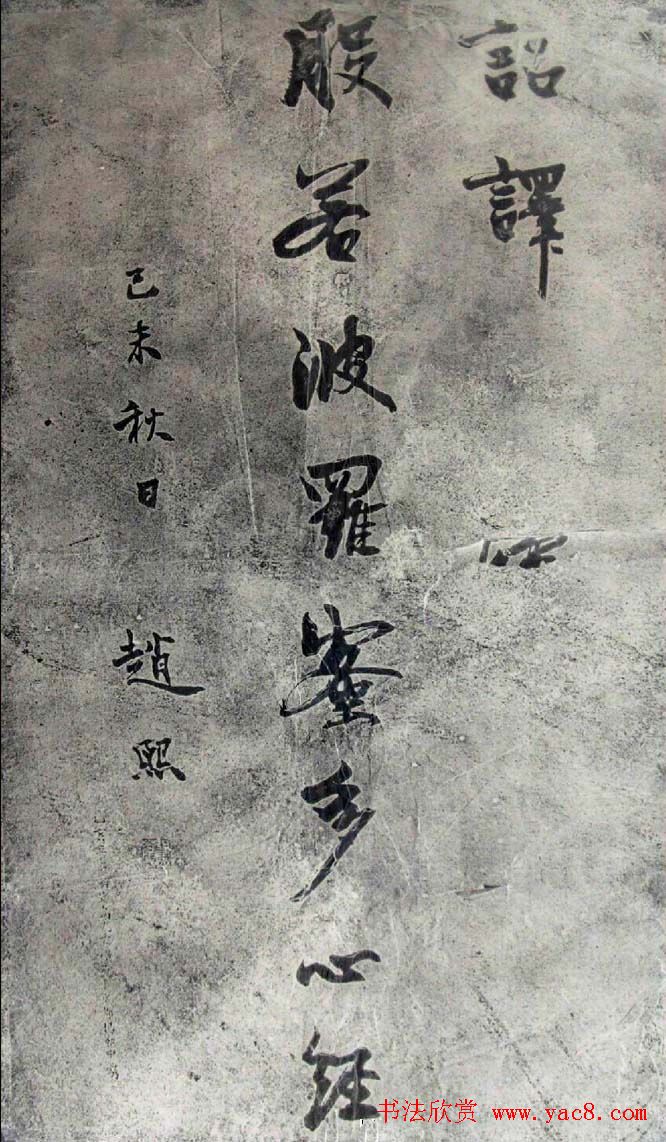 詔譯
般若波羅蜜多心經
己未秋日 趙熙
书法欣赏 www.yac8.com